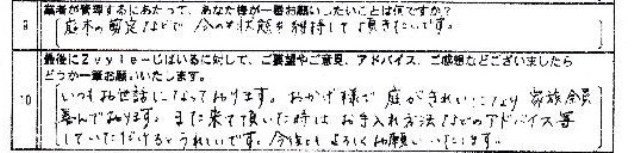 業者が管理するにあたって、あなた様が一番お願いしたいことは何ですか？
9
庭木の剪定などで 今の状態を維持して頂きたいです。
最後にZyyleーじぱいるに対して、ご要望やご意見、アドバイス、ご感想などございましたら
どうか一筆お願いいたします。
10
いつもお世話になっております。おかげ様で庭がきれいになり 家族全員
喜んでおります。また来て頂いた時はお手入れ方法などのアドバイス等
していただけるとうれしいです。今後ともよろしくお願いいたします。